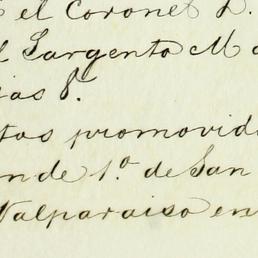 el Coronel D.
Sargento M
ias P.
tos promovid
nde 1º. de San
Valparaiso en